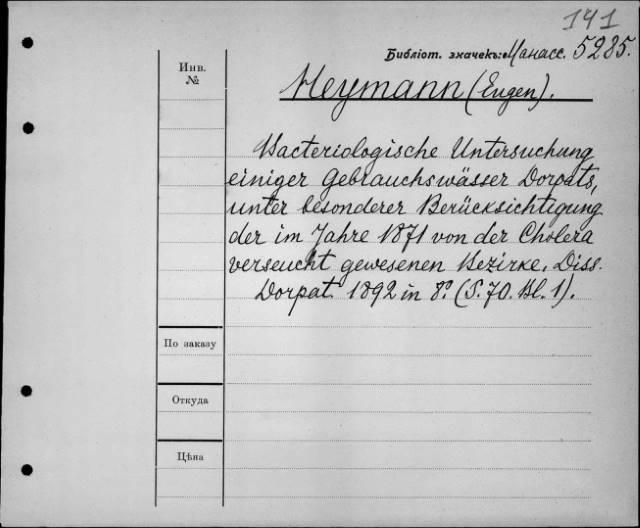 141
Библіот. значекъ: Манасс. 5285.
Инв.
№
Heymann (Eugen).
Bacteriologische Untersuchung
einiger Gebrauchswässer Dorpats,
unter besonderer Berücksichtigung
der im Jahre 1871 von der Cholera
verseucht gewesenen Bezirke. Diss.
Dorpat. 1892 in 8º. (S. 70. Bl. 1).
По заказу
Откуда
Цѣна